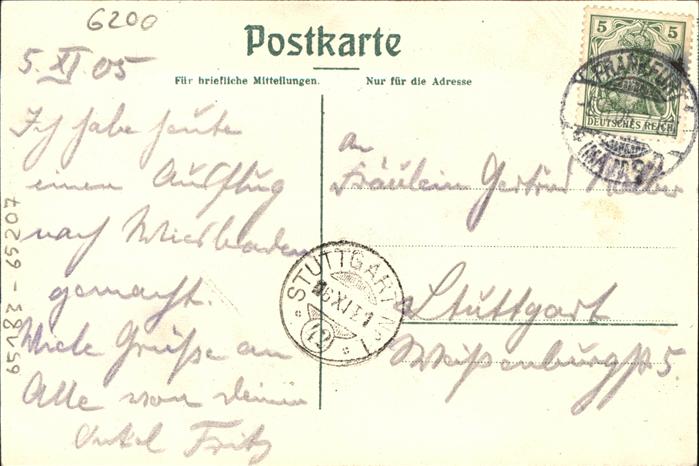 6200
Postkarte
5. XI 05
Für briefliche Mitteilungen.
Nur für die Adresse
5 5
DEUTSCHES REICH
FRANKFURT
(MAIN)
Ich habe heute
einen Ausflug
nach Wiesbaden
gemacht.
Viele Grüße an
Alle von deinem
Onkel Fritz
An
Fräulein Gertrud
Stuttgart
Weißenburgst 5.
STUTTGART No. 1
65183 - 65207